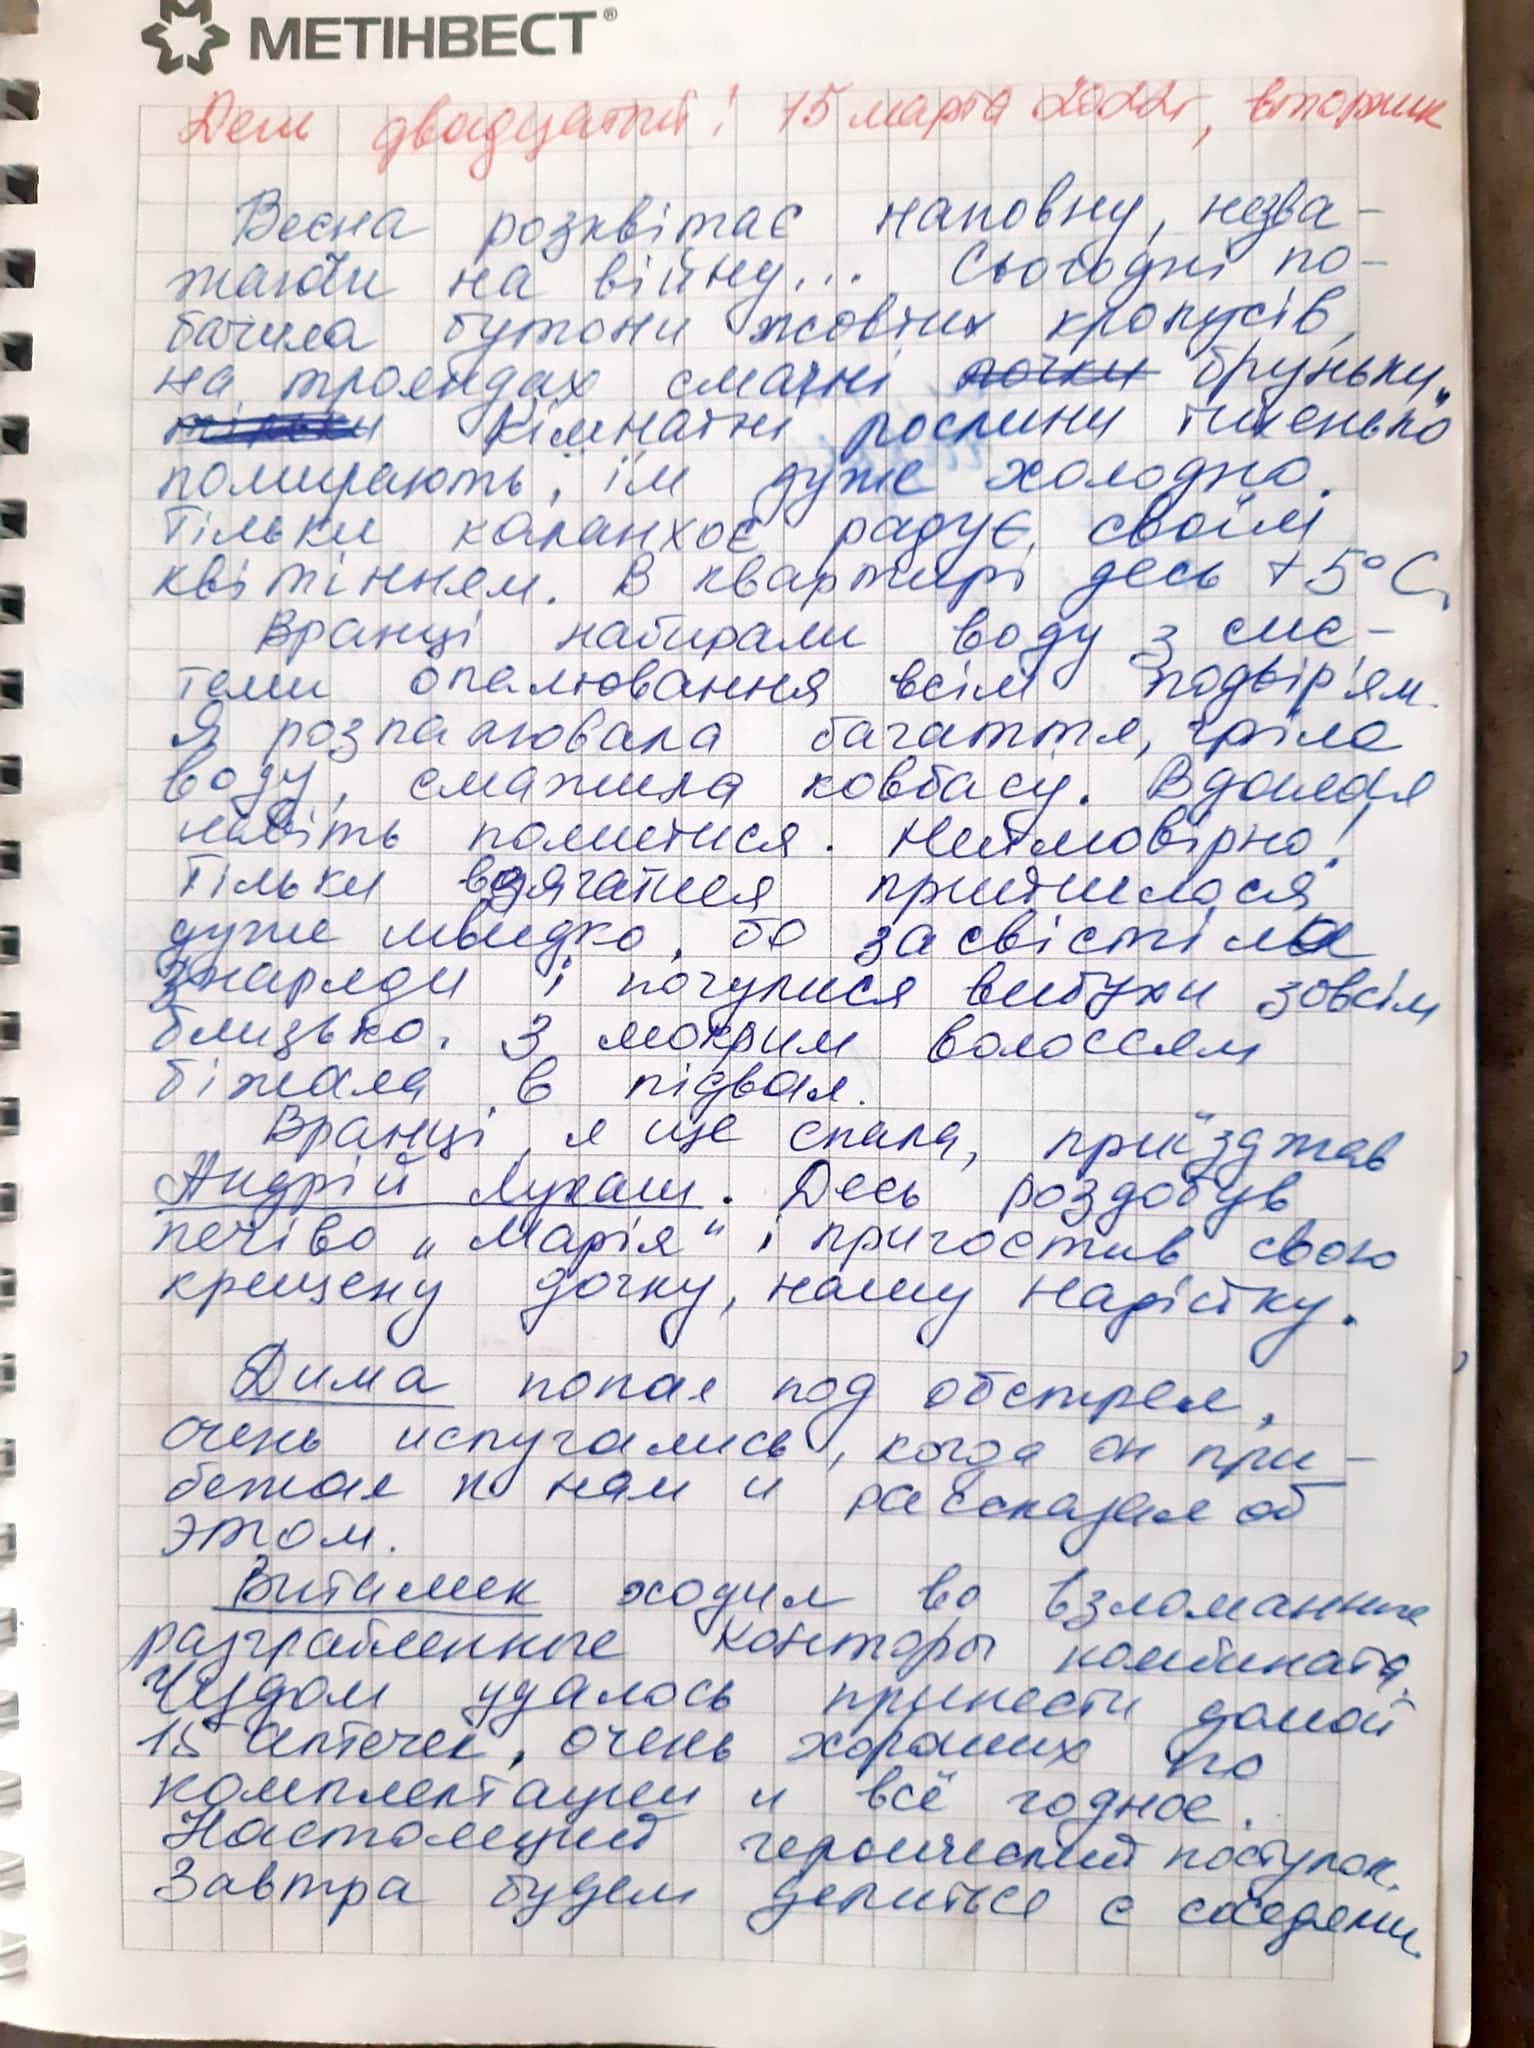 МЕТІНВЕСТ®
День двадцатый! 15 марта 2022г, вторник
Весна розквітає наповну, незва-
жаючи на війну... Сьогодні по-
бачила бутони жовтих крокусів,
на трояндах смачні почки бруньки.
тільки Кімнатні рослини тихенько
помирають, їм дуже холодно.
Тільки каланхоє радує своїм
квітінням. В квартирі десь +5°С.
Вранці набирали воду з сис-
теми опалювання всім подвір'ям.
Я розпалювала багаття, гріла
воду, смажила ковбасу. Вдалося
навіть помитися. Неймовірно!
Тільки вдягатися прийшлося
дуже швидко, бо засвістіла
знаряди і почулися вибухи зовсім
близько. З мокрим волоссям
біжала в підвал.
Вранці, я ще спала, приїзджав
Андрій Лукаш. Десь роздобув
печіво „Марія" і пригостив свою
крещену дочку, нашу Нарістку.
Дима попал под обстрел,
очень испугались, когда он при-
бежал к нам и рассказал об
этом.
Виталик ходил во взломанные
разграбленные конторы комбината.
Чудом удалось принести домой
15 аптечек, очень хороших по
комплектации и всё годное.
Настоящий героический поступок.
Завтра будем делиться с соседями.